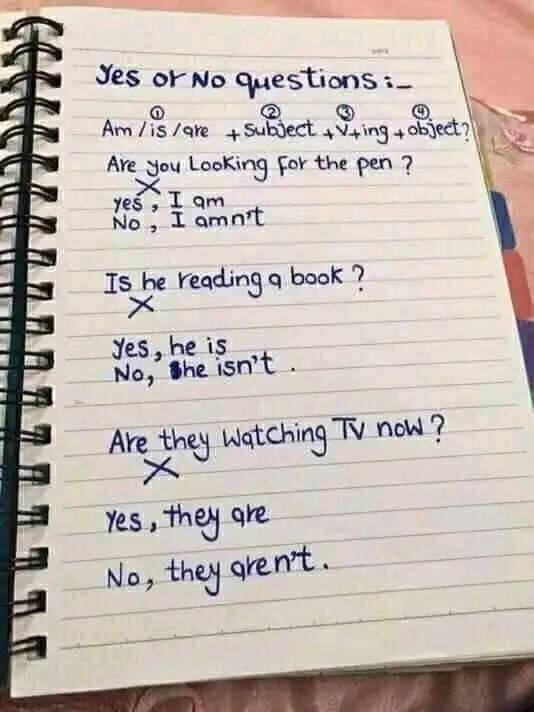 Yes or No questions :-
① ② ③ ④
Am / is / are + Subject + V+ing + object?
Are you Looking for the pen ?
X
yes , I am
No , I amn't
Is he reading a book ?
X
Yes, he is
No, he isn't .
Are they watching TV now ?
X
Yes, they are
No, they aren't .